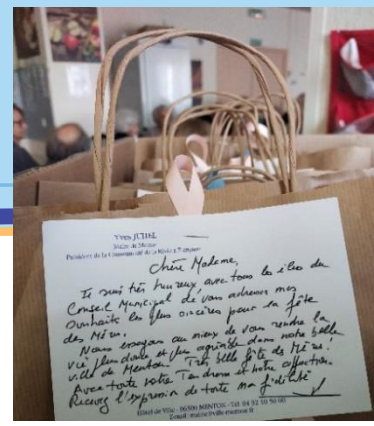 Yves JUHEL
Maire de Menton
Président de la Communauté de la Riviera Française
Chère Madame,
Je suis très heureux avec tous les élus du
Conseil Municipal de vous adresser mes
souhaits les plus sincères pour la fête
des Mères.
Nous essayons au mieux de vous rendre la
vie plus douce et plus agréable dans notre belle
ville de Menton. Très belle fête de Mères !
Avec toute notre Tendresse et notre affection.
Recevez l'expression de toute ma fidélité
Hôtel de Ville - 06500 MENTON - Tél. 04 92 10 50 00